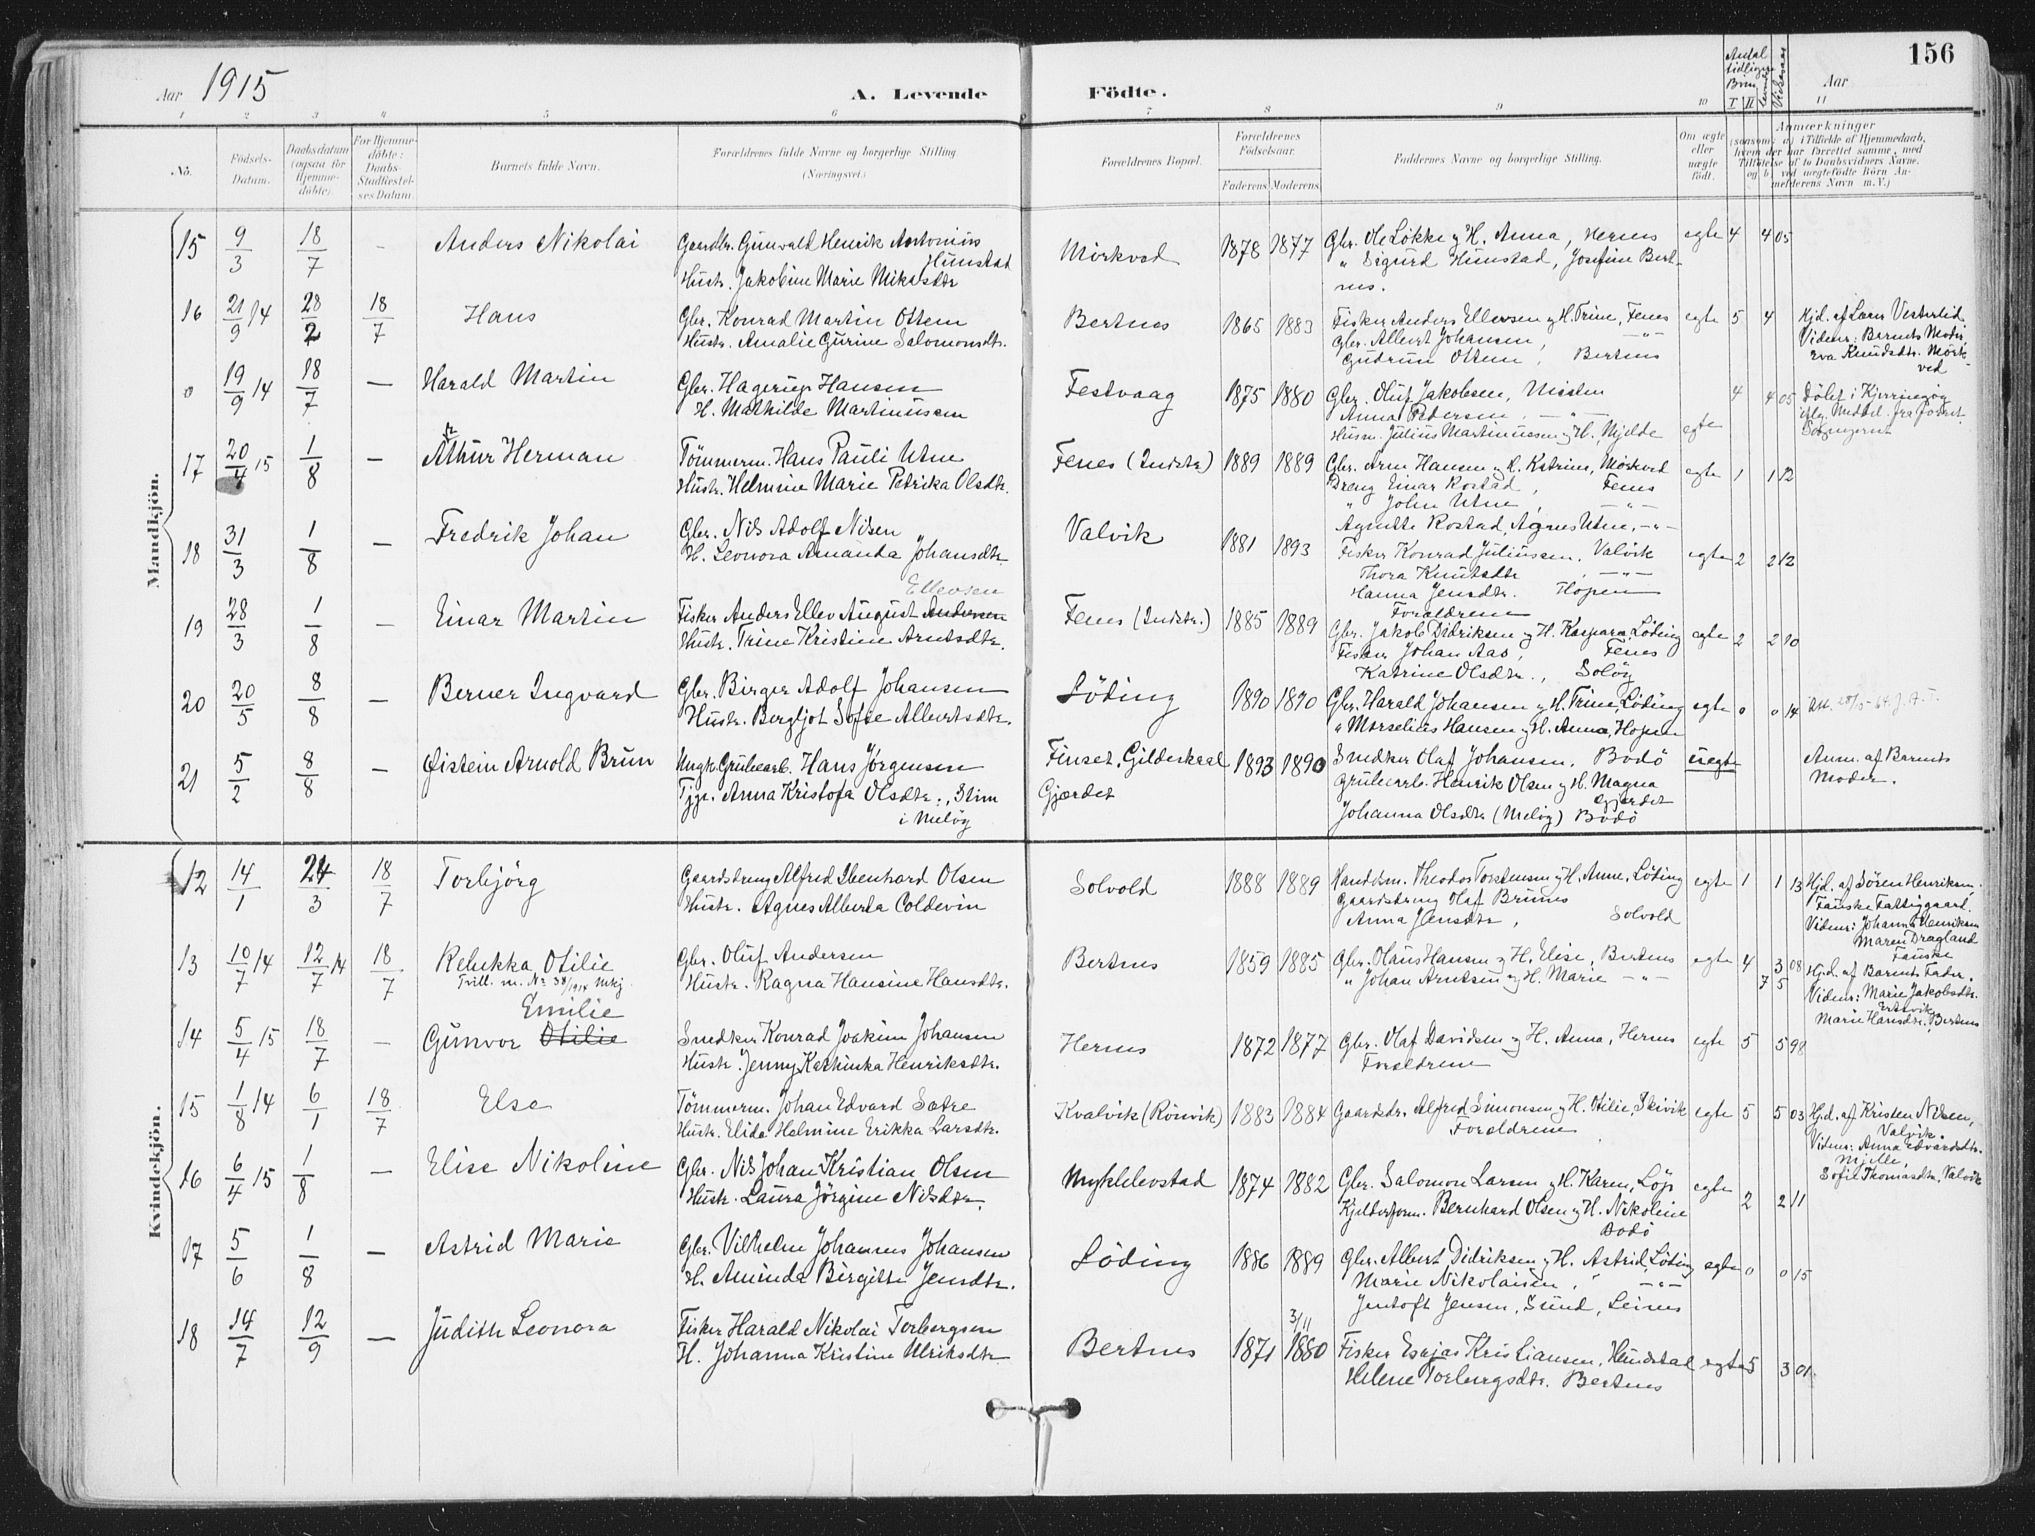 156
Aar 1915
A. Levende Födte.
Antal tidligere Børn
I II
Aar
1 2 3 4 5 6 7 8 9 10 11
No. Födsels-Datum. Daabsdatum (ogsaa for Hjemmedöbte). For Hjemmedöbte: Daabs-Stadfæstelses Datum. Barnets fulde Navn. Forældrenes fulde Navne og borgerlige Stilling (Næringsvei.) Forældrenes Bopæl. Forældrenes Födselsaar. Faderens. Moderens. Faddernes Navne og borgerlige Stilling. Om ægte eller uægte födt. Anmærkninger (saasom: a) i Tilfælde af Hjemmedaab, hvem der har forrettet samme, med Tilföielse af to Daabsvidners Navne, og b) ved uægtefödte Börn Anmelderens Navn m. V.)
Mandkjön.
15 9/3 18/7 - Anders Nikolai Gaardbr. Gunvald Henrik Antonius Hunstad
Hustr. Jakobine Marie Mikalsdtr
Mörkved 1878 1877 Gbr. Ole Løkke og H. Anna, Hernes
" Sigurd Hunstad, Josefine Bertnes.
egte 4 4 05
16 21/9 14 28/2 18/7 Hans Gbr. Konrad Martin Ottem
Hustr. Amalie Gurine Salomonsdtr.
Bertnes 1865 1883 Fisker Anders Ellevsen og H. Trine, Fenes
Gbr. Albert Johansen, — " —
Gudrun Ottem, Bertnes
egte 5 4 Hjd. af Lærer Vestertid
Vidner: Barnets Moder
Eva Knudsdtr. Mörkved
0 19/9 14 18/7 — Harald Martin Gbr. Hagerup Hansen
H. Mathilde Martinussen
Festvaag 1875 1880 Gbr. Oluf Jakobsen, Misten
Anna Pedersen, — " —
Husm. Julius Martinussen og H., Mjelde
egte 4 4 05 Döbt i Kjerringøy
17 20/4 15 1/8 — Arthur Herman Tömmerm. Hans Pauli Utne
Hustr. Helmine Marie Petrika Olsdtr.
Fenes (Indstr.) 1889 1889 Gbr. Arne Hansen og H. Katrine, Mörkved
Dreng Einar Rostad, Fenes
" John Utne, — " —
Agnethe Rostad, Agnes Utne, — " —
egte 1 1 12
18 31/3 1/8 — Fredrik Johan Gbr. Nils Adolf Nilsen
H. Leonora Amanda Johansdtr.
Valvik 1881 1893 Fisker Konrad Juliussen, Valvik
Thora Knutsdtr, — " —
Hanna Jensdtr. Hopen
Forældrene
egte 2 2 12
19 28/3 1/8 — Einar Martin Fisker Anders Ellev August Andersen Ellevsen
Hustr. Trine Kristine Arntsdtr.
Fenes (Indstr.) 1885 1889 Gbr. Jakob Didriksen og H. Kaspara, Löding
Fisker Johan Aas, Fenes
Katrine Olsdtr., Soløy
egte 2 2 10
20 20/5 8/8 — Berner Ingvard Gbr. Birger Adolf Johansen
Hustr. Bergljot Sofie Albertsdtr.
Löding 1890 1890 Gbr. Harald Johansen og H. Trine, Löding
" Marselius Hansen og H. Anna, Hopen
egte 0 0 14
21 5/2 8/8 — Øistein Arnold Brun Ungk. Grubearb. Hans Jørgensen
Tjp. Anna Kristofa Olsdtr., Stim
i Meløy
Finset, Gildeskaal
Gjærdet
1893 1890 Snedker Olaf Johansen, Bodö
Grubearb. Henrik Olsen og H. Magna
Gjærdet
Johanna Olsdtr (Meløy) Bodö
uegte Anm. af Barnets
Moder.
Kvindekjön.
12 14/1 24/3 18/7 Torbjörg Gaardsdreng Alfred Ebenhard Olsen
Hustr. Agnes Alberta Coldevin
Solvold 1888 1889 Handelsm. Theodor Torstensen og H. Anne, Löding
Gaardsdreng Olaf Brunes
Anna Jensdtr, Solvold
egte 1 1 13 Hjd. af Sören Henriksen,
Fauske Fattiggaard.
Vidner: Johanna Henriksen
Maren Dragland
Fauske
13 10/7 14 12/7 14 18/7 Rebekka Otilie
Tvill. m. No 38/1914 Mkj.
Gbr. Oluf Andersen
Hustr. Ragna Hansine Hansdtr.
Bertnes 1859 1885 Gbr. Olaus Hansen og H. Elise, Bertnes
" Johan Arntsen og H. Marie — " —
egte 4 3 08
7 5
Hjd. af Barnets Fader.
Vidner: Marie Jakobsdtr.
Ertsvik
Marie Hansdtr., Bertnes
14 5/4 15 18/7 - Gunvor Otilie Emilie Snedker Konrad Joakim Johansen
Hustr. Jenny Kathinka Henriksdtr.
Hernes 1872 1877 Gbr. Olaf Davidsen og H. Anna, Hernes
Forældrene
egte 5 5 98
15 1/8 14 6/1 18/7 Else Tömmerm. Johan Edvard Sætre
Hustr. Elida Helmine Erikka Larsdtr.
Kvalvik (Rönvik) 1883 1884 Gaardbr. Alfred Simonsen og H. Otilie, Skivik
Forældrene
egte 5 5 03 Hjd. af Kristen Nilsen,
Valvik.
Vidner: Anna Edvardsdtr.
Mjelle,
Sofie Thomasdtr, Valvik
16 6/4 15 1/8 — Elise Nikoline Gbr. Nils Johan Kristian Olsen
Hustr. Laura Jörgine Nilsdtr.
Myklebostad 1874 1882 Gbr. Salomon Larsen og H. Karen, Löp
Kjelderform. Bernhard Olsen og H. Nikoline
Bodö
egte 2 2 11
17 5/6 1/8 — Astrid Marie Gbr. Vilhelm Johannes Johansen
H. Aminda Birgitte Jensdtr.
Löding 1886 1889 Gbr. Albert Didriksen og H. Astrid, Löding
Marie Nikolaisen, — " —
Jentoft Jensen, Sund, Leines
egte 0 0 15
18 14/7 12/9 — Judith Leonora Fisker Harald Nikolai Torbergsen
H. Johanna Kristine Ulriksdtr.
Bertnes 1871 3/11 1880 Fisker Esaias Kristiansen, Hundstad
Helene Torbergsdtr. Bertnes
egte 5 3 01